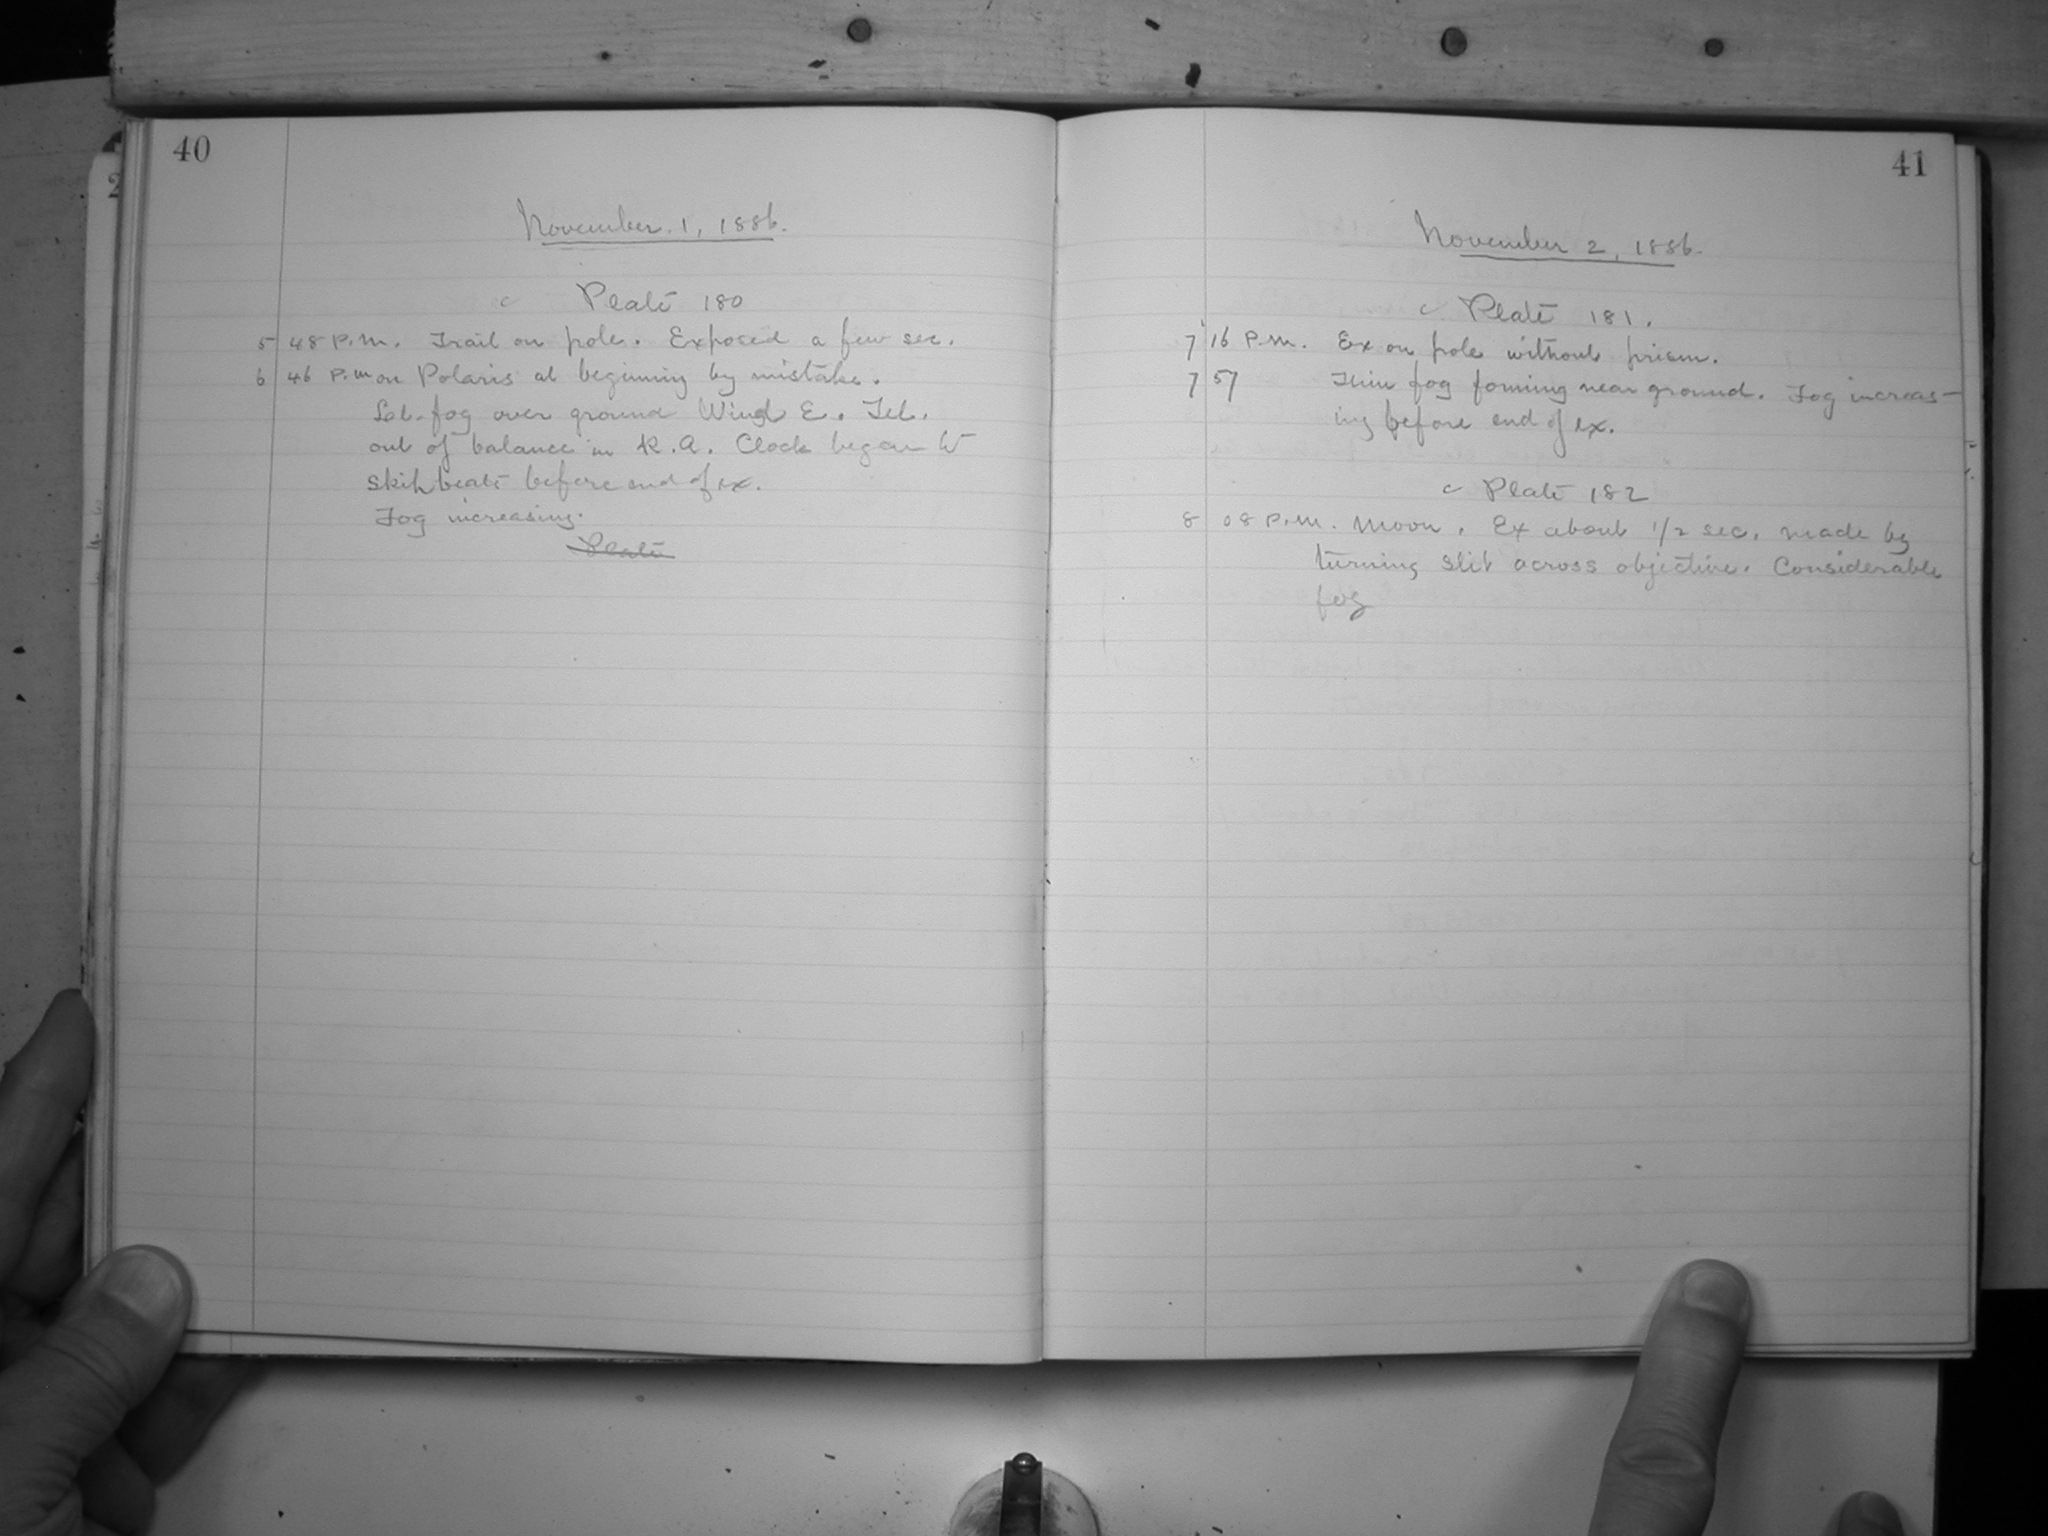 40
November 1, 1886.
c Plate 180
5 48 P.M. Trail on pole. Exposed a few sec.
6 46 P.M. on Polaris at beginning by mistake.
fog over ground Wind E. Tel.
out of balance in R.A. Clock began to
skip beats before end of ex.
Fog increasing.
Plate
41
November 2, 1886.
c Plate 181.
7 16 P.M. Ex on pole without prism.
7 57 Thin fog forming near ground. Fog increas-
ing before end of ex.
c Plate 182
8 08 P.M. Moon. Ex about 1/2 sec. made by
turning slit across objective. Considerable
fog